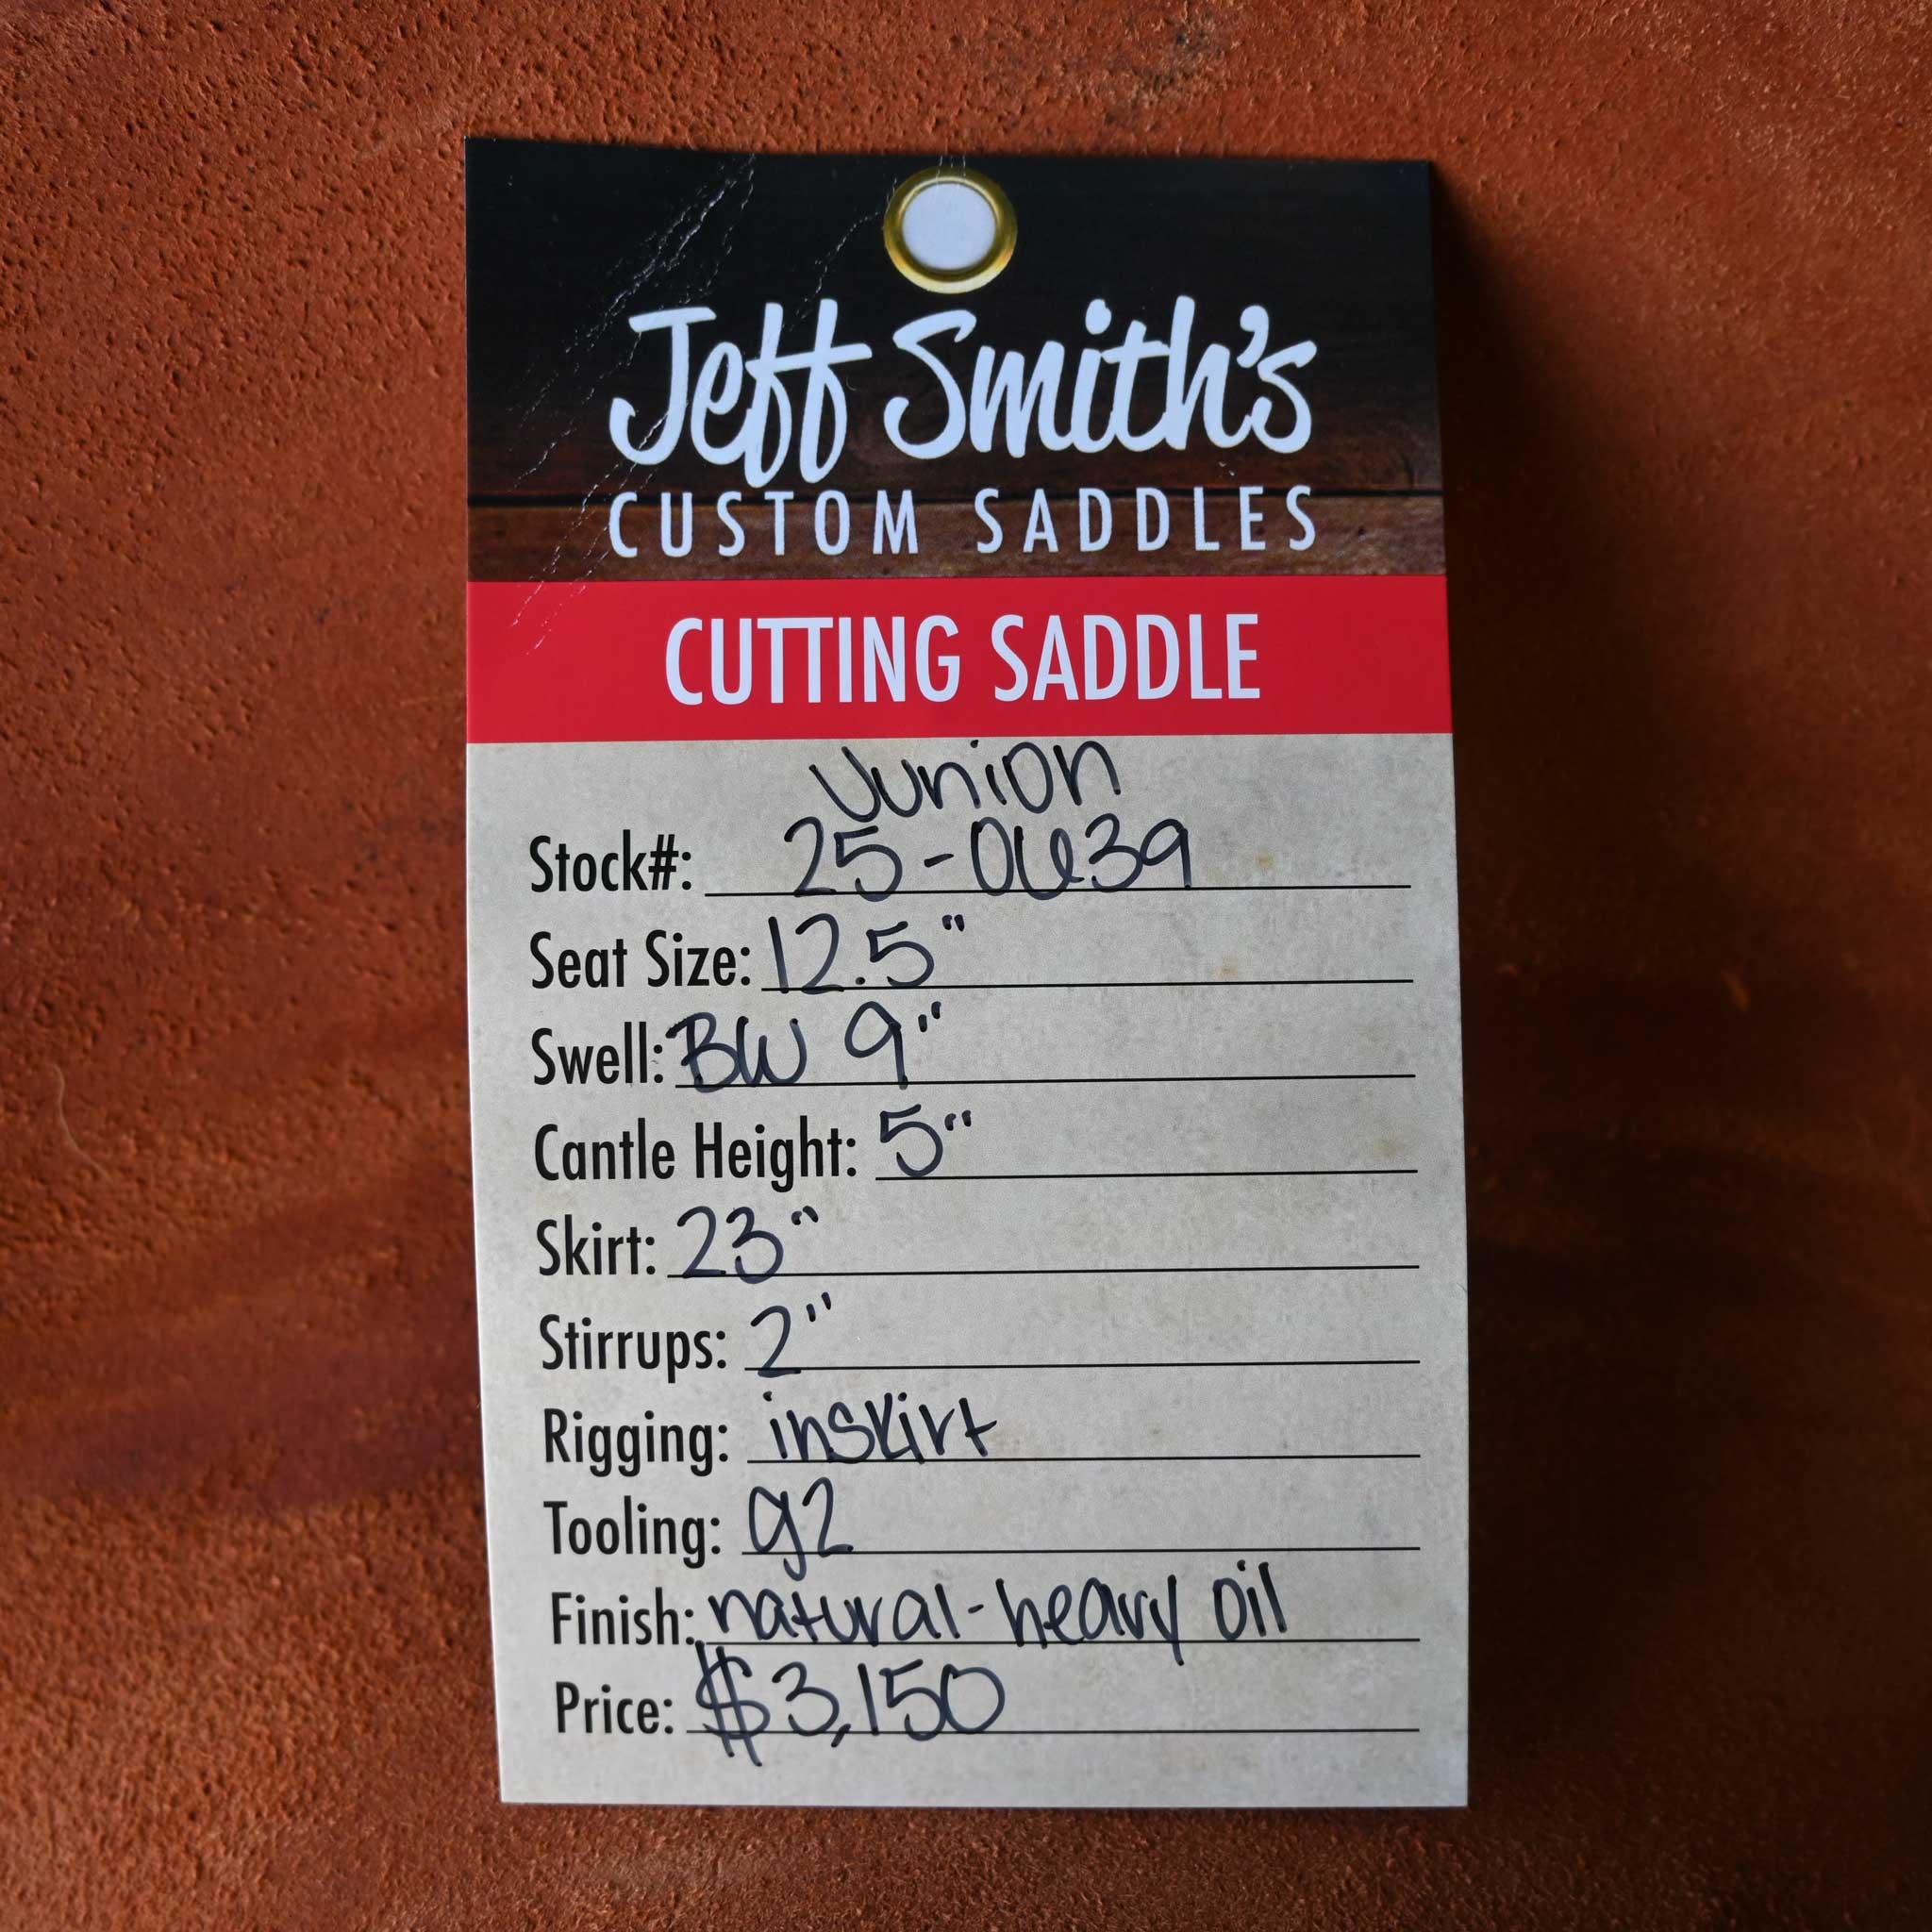 Jeff Smith's
CUSTOM SADDLES
CUTTING SADDLE
Junion
Stock#: 25-0639
Seat Size: 12.5"
Swell: BW 9"
Cantle Height: 5"
Skirt: 23"
Stirrups: 2"
Rigging: inskirt
Tooling: g2
Finish: natural-heavy oil
Price: $3,150